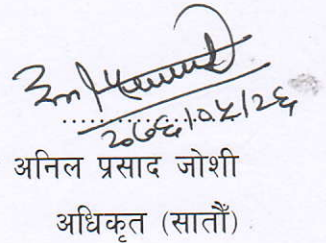 २०७६।०५।२६
अनिल प्रसाद जोशी
अधिकृत (सातौँ)